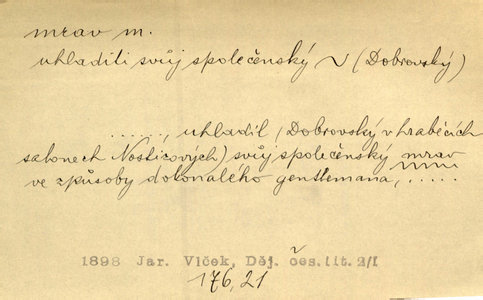 mrav m.
uhladiti svůj společenský ~ (Dobrovský)
......, uhladil (Dobrovský v hraběcích
salonech Nosticových) svůj společenský mrav
ve způsoby dokonalého gentlemana, .....
1898 Jar. Vlček, Děj. čes. lit. 2/I
176,21